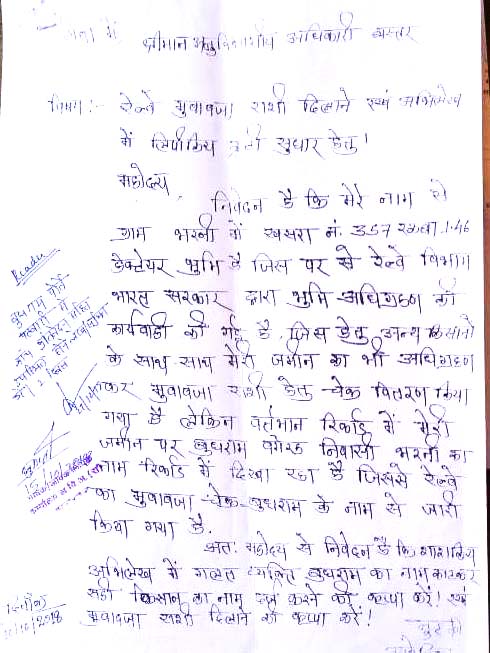 श्रीमान अनुविभागीय अधिकारी बस्तर
विषय :- रेल्वे मुवावजा राशी दिलाने एवं अभिलेख
में लिपीकिय त्रुटी सुधार हेतु!
महोदय
निवेदन है कि मेरे नाम से
ग्राम भरनी में खसरा नं. 357 रकबा 1.46
हेक्टेयर भूमि है जिस पर से रेल्वे विभाग
भारत सरकार द्वारा भूमि अधिग्रहण की
कार्यवाही की गई है जिस हेतु अन्य किसानो
के साथ-साथ मेरी जमीन का भी अधिग्रहण
कर मुवावजा राशी हेतु चेक वितरण किया
गया है लेकिन वर्तमान रिकॉर्ड में मेरी
जमीन पर बुधराम वगैरह निवासी भरनी का
नाम रिकॉर्ड में दिखा रहा है जिससे रेल्वे
का मुवावजा चेक बुधराम के नाम से जारी
किया गया है.
अतः महोदय से निवेदन है कि शासकिय
अभिलेख में गलत व्यक्ति बुधराम का नाम काटकर
सही किसान का नाम दर्ज करने की कृपा करें! एवं
मुवावजा राशी दिलाने की कृपा करें!
Reader
दिनाँक
10/10/2018